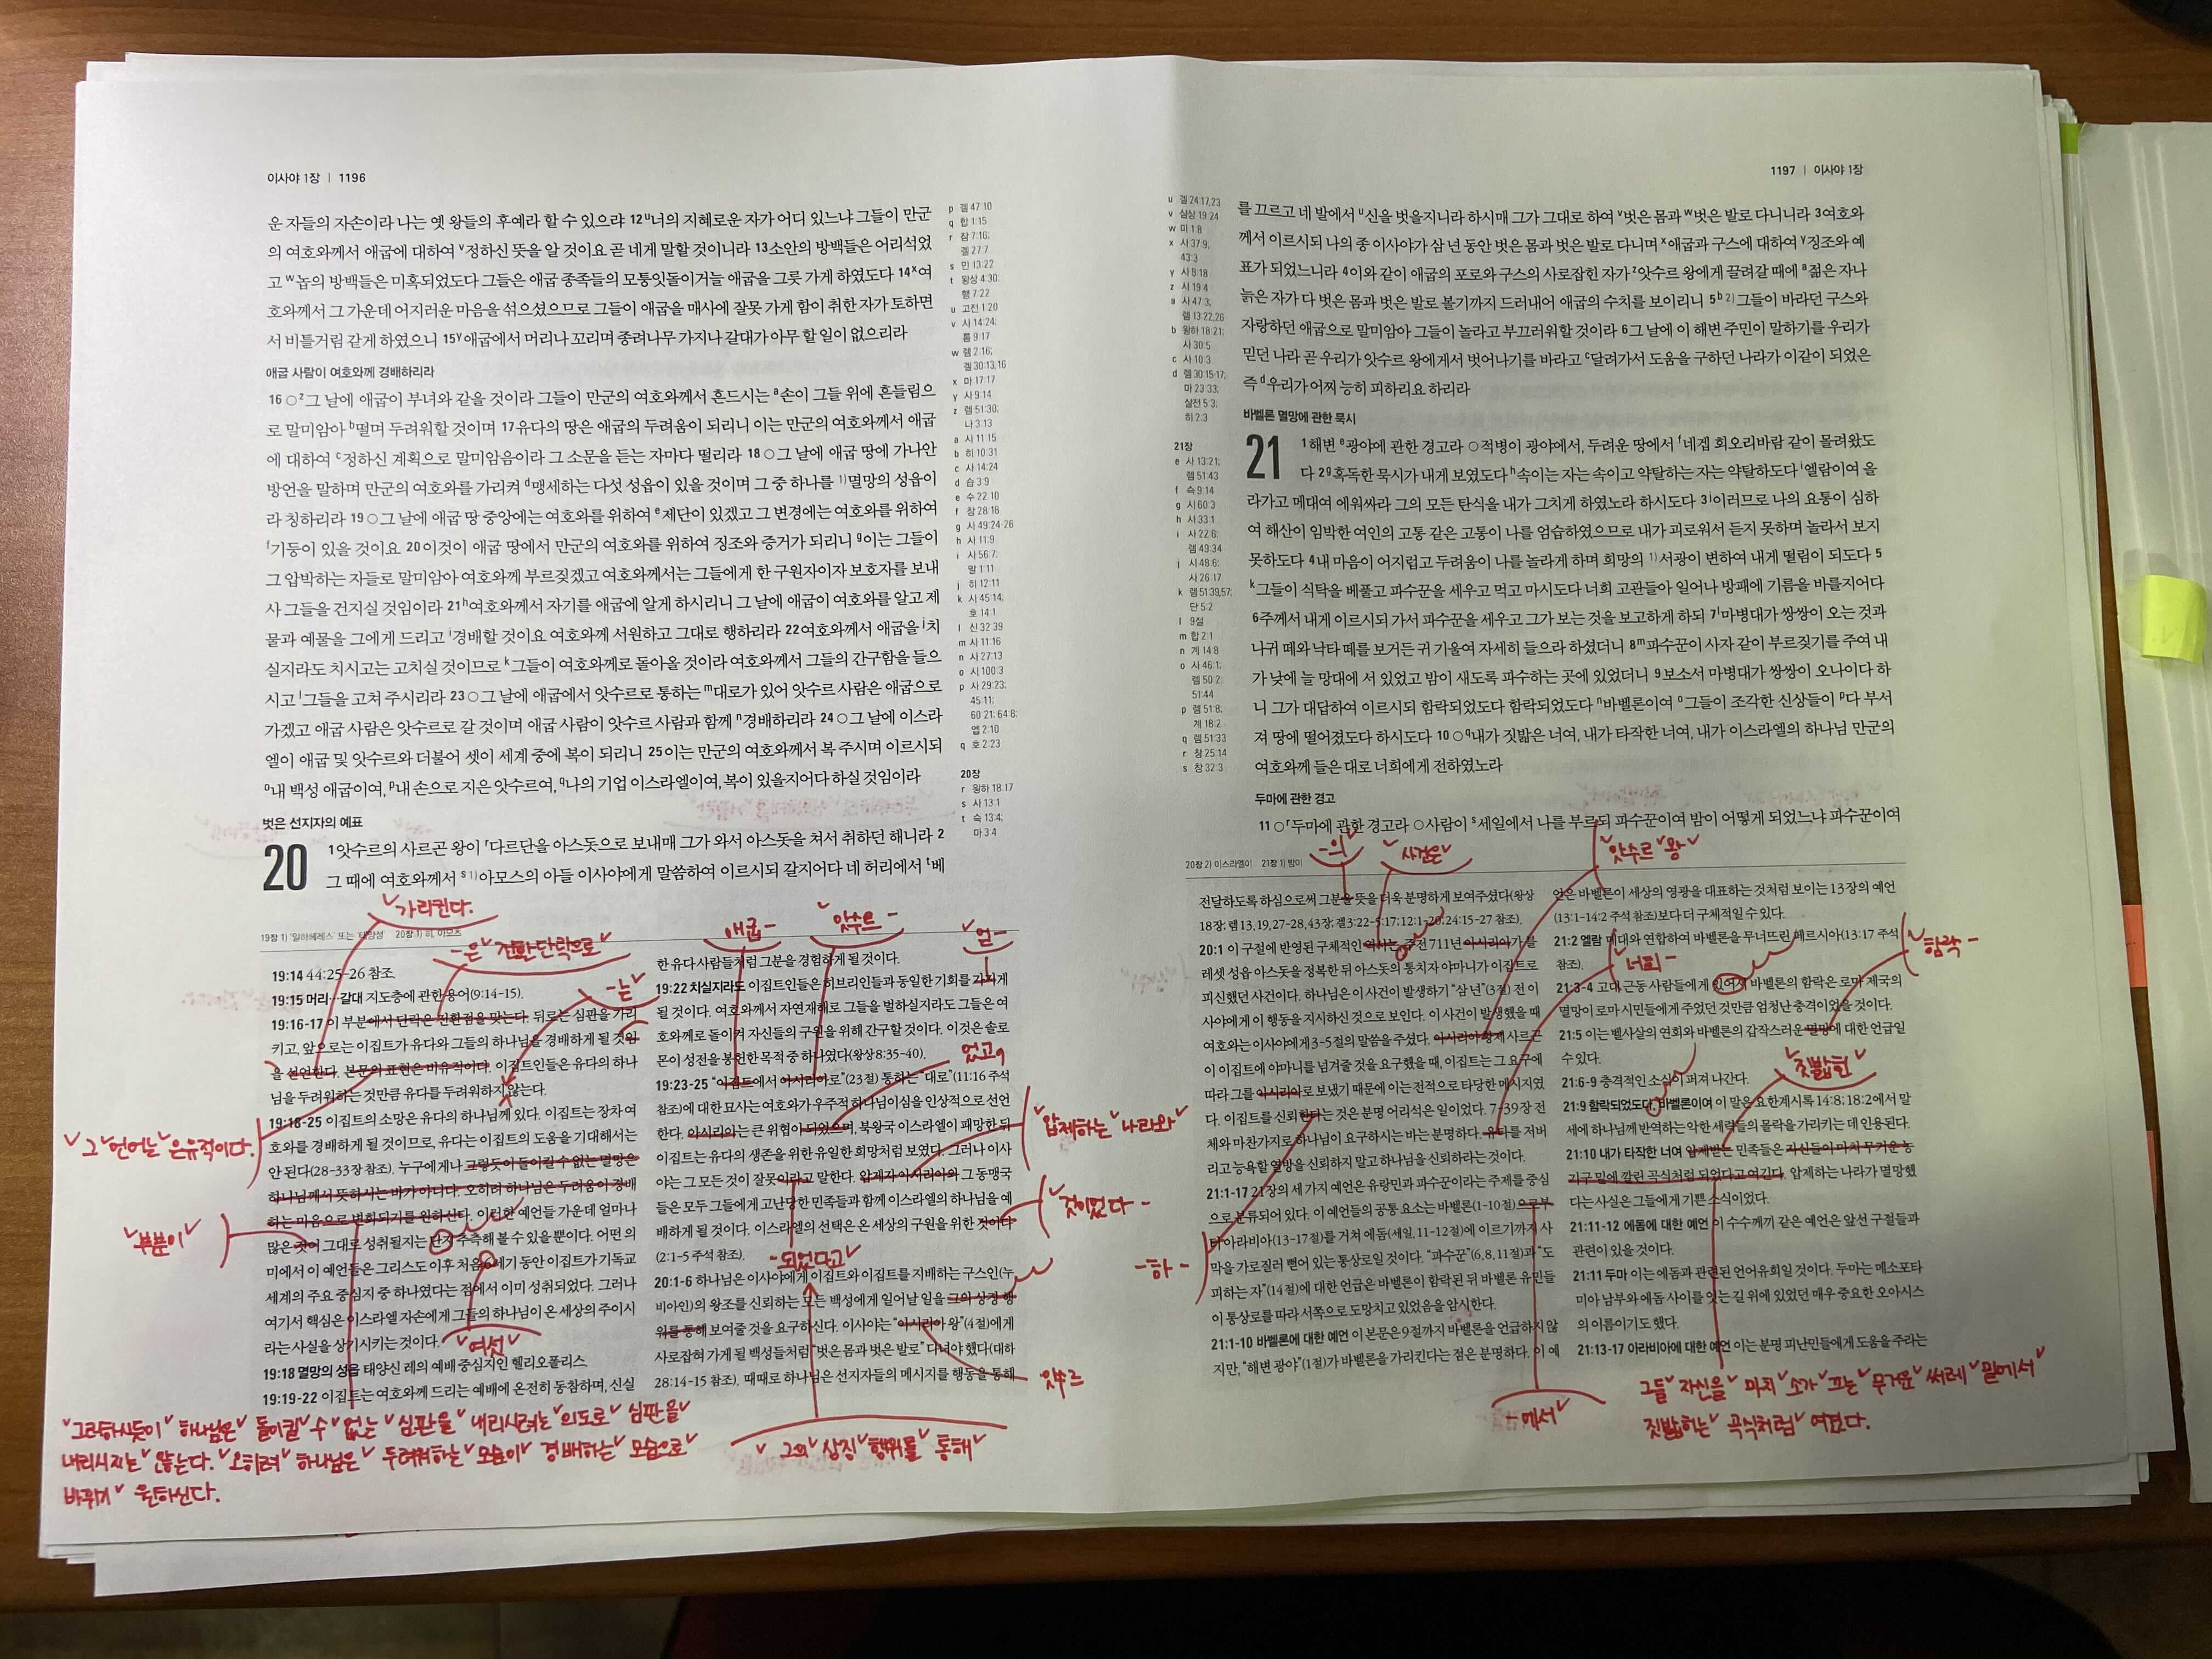 이사야 1장 | 1196
운 자들의 자손이라 나는 옛 왕들의 후예라 할 수 있으랴 12ᵘ너의 지혜로운 자가 어디 있느냐 그들이 만군
의 여호와께서 애굽에 대하여 ᵛ정하신 뜻을 알 것이요 곧 네게 말할 것이니라 13소안의 방백들은 어리석었
고 ʷ놉의 방백들은 미혹되었도다 그들은 애굽 종족들의 모퉁잇돌이거늘 애굽을 그릇 가게 하였도다 14ˣ여
호와께서 그 가운데 어지러운 마음을 섞으셨으므로 그들이 애굽을 매사에 잘못 가게 함이 취한 자가 토하면
서 비틀거림 같게 하였으니 15ʸ애굽에서 머리나 꼬리며 종려나무 가지나 갈대가 아무 할 일이 없으리라
애굽 사람이 여호와께 경배하리라
16 ○ᶻ그 날에 애굽이 부녀와 같을 것이라 그들이 만군의 여호와께서 흔드시는 ᵃ손이 그들 위에 흔들림으
로 말미암아 ᵇ떨며 두려워할 것이며 17유다의 땅은 애굽의 두려움이 되리니 이는 만군의 여호와께서 애굽
에 대하여 ᶜ정하신 계획으로 말미암음이라 그 소문을 듣는 자마다 떨리라 18 ○그 날에 애굽 땅에 가나안
방언을 말하며 만군의 여호와를 가리켜 ᵈ맹세하는 다섯 성읍이 있을 것이며 그 중 하나를 ¹⁾멸망의 성읍이
라 칭하리라 19 ○그 날에 애굽 땅 중앙에는 여호와를 위하여 ᵉ제단이 있겠고 그 변경에는 여호와를 위하여
ᶠ기둥이 있을 것이요 20이것이 애굽 땅에서 만군의 여호와를 위하여 징조와 증거가 되리니 ᵍ이는 그들이
그 압박하는 자들로 말미암아 여호와께 부르짖겠고 여호와께서는 그들에게 한 구원자이자 보호자를 보내
사 그들을 건지실 것임이라 21ʰ여호와께서 자기를 애굽에 알게 하시리니 그 날에 애굽이 여호와를 알고 제
물과 예물을 그에게 드리고 ⁱ경배할 것이요 여호와께 서원하고 그대로 행하리라 22여호와께서 애굽을 ʲ치
실지라도 치시고는 고치실 것이므로 ᵏ그들이 여호와께로 돌아올 것이라 여호와께서 그들의 간구함을 들으
시고 ˡ그들을 고쳐 주시리라 23 ○그 날에 애굽에서 앗수르로 통하는 ᵐ대로가 있어 앗수르 사람은 애굽으로
가겠고 애굽 사람은 앗수르로 갈 것이며 애굽 사람이 앗수르 사람과 함께 ⁿ경배하리라 24 ○그 날에 이스라
엘이 애굽 및 앗수르와 더불어 셋이 세계 중에 복이 되리니 25이는 만군의 여호와께서 복 주시며 이르시되
ᵒ내 백성 애굽이여, ᵖ내 손으로 지은 앗수르여, ᑫ나의 기업 이스라엘이여, 복이 있을지어다 하실 것임이라
벗은 선지자의 예표
20
1앗수르의 사르곤 왕이 ʳ다르단을 아스돗으로 보내매 그가 와서 아스돗을 쳐서 취하던 해니라 2
그 때에 여호와께서 ˢ ¹⁾아모스의 아들 이사야에게 말씀하여 이르시되 갈지어다 네 허리에서 ᵗ베
p 겔 47:10
q 합 1:15
r 잠 7:16;
겔 27:7
s 민 13:22
t 왕상 4:30;
행 7:22
u 고전 1:20
v 사 14:24;
롬 9:17
w 렘 2:16;
겔 30:13,16
x 마 17:17
y 사 9:14
z 렘 51:30;
나 3:13
a 사 11:15
b 히 10:31
c 사 14:24
d 습 3:9
e 수 22:10
f 창 28:18
g 사 49:24-26
h 사 11:9
i 사 56:7;
말 1:11
j 히 12:11
k 사 45:14;
호 14:1
l 신 32:39
m 사 11:16
n 사 27:13
o 시 100:3
p 사 29:23;
45:11;
60:21; 64:8;
엡 2:10
q 호 2:23
20장
r 왕하 18:17
s 사 13:1
t 슥 13:4;
마 3:4
가리킨다.
-은 전환 단락으로
-는
애굽-
앗수르-
얻-
19:14 44:25-26 참조.
19:15 머리…갈대 지도층에 관한 용어(9:14-15).
19:16-17 이 부분에서 단락은 전환점을 맞는다. 뒤로는 심판을 가리
키고, 앞으로는 이집트가 유다와 그들의 하나님을 경배하게 될 것임
을 선언한다. 본문의 표현은 비유적이다. 이집트인들은 유다의 하나
님을 두려워하는 것만큼 유다를 두려워하지 않는다.
19:18-25 이집트의 소망은 유다의 하나님께 있다. 이집트는 장차 여
호와를 경배하게 될 것이므로, 유다는 이집트의 도움을 기대해서는
안 된다(28-33장 참조). 누구에게나 그렇듯이 돌이킬 수 없는 멸망은
하나님께서 뜻하시는 바가 아니다. 오히려 하나님은 두려움이 경배
하는 마음으로 변화되기를 원하신다. 이러한 예언들 가운데 얼마나
많은 것이 그대로 성취될지는 단지 추측해 볼 수 있을 뿐이다. 어떤 의
미에서 이 예언들은 그리스도 이후 처음 6세기 동안 이집트가 기독교
세계의 주요 중심지 중 하나였다는 점에서 이미 성취되었다. 그러나
여기서 핵심은 이스라엘 자손에게 그들의 하나님이 온 세상의 주이시
라는 사실을 상기시키는 것이다.
19:18 멸망의 성읍 태양신 레의 예배 중심지인 헬리오폴리스.
19:19-22 이집트는 여호와께 드리는 예배에 온전히 동참하며, 신실
그 언어는 은유적이다.
부분이
여섯
그러하시듯이 하나님은 돌이킬 수 없는 심판을 내리시려는 의도로 심판을
내리시지는 않는다. 오히려 하나님은 두려워하는 모습이 경배하는 모습으로
바뀌기 원하신다.
한 유다 사람들처럼 그분을 경험하게 될 것이다.
19:22 치실지라도 이집트인들은 히브리인들과 동일한 기회를 가지게
될 것이다. 여호와께서 자연재해로 그들을 벌하실지라도 그들은 여
호와께로 돌이켜 자신들의 구원을 위해 간구할 것이다. 이것은 솔로
몬이 성전을 봉헌한 목적 중 하나였다(왕상 8:35-40).
19:23-25 “이집트에서 아시리아로”(23절) 통하는 “대로”(11:16 주석
참조)에 대한 묘사는 여호와가 우주적 하나님이심을 인상적으로 선언
한다. 아시리아는 큰 위협이 되었으며, 북왕국 이스라엘이 패망한 뒤
이집트는 유다의 생존을 위한 유일한 희망처럼 보였다. 그러나 이사
야는 그 모든 것이 잘못이라고 말한다. 압제자 아시리아와 그 동맹국
들은 모두 그들에게 고난당한 민족들과 함께 이스라엘의 하나님을 예
배하게 될 것이다. 이스라엘의 선택은 온 세상의 구원을 위한 것이다
(2:1-5 주석 참조).
20:1-6 하나님은 이사야에게 이집트와 이집트를 지배하는 구스인(누
비아인)의 왕조를 신뢰하는 모든 백성에게 일어날 일을 그의 상징 행
위를 통해 보여줄 것을 요구하신다. 이사야는 “아시리아 왕”(4절)에게
사로잡혀 가게 될 백성들처럼 “벗은 몸과 벗은 발로” 다녀야 했다(대하
28:14-15 참조). 때때로 하나님은 선지자들의 메시지를 행동을 통해
었고,
압제하는 나라와
것이었다-
되었다고
앗수르
그의 상징 행위를 통해
1197 | 이사야 1장
u 겔 24:17,23
v 삼상 19:24
w 미 1:8
x 사 37:9;
43:3
y 사 8:18
z 사 19:4
a 사 47:3;
렘 13:22,26
b 왕하 18:21;
사 30:5
c 사 10:3
d 렘 30:15-17;
마 23:33;
살전 5:3;
히 2:3
21장
e 사 13:21;
렘 51:43
f 슥 9:14
g 시 60:3
h 사 33:1
i 사 22:6;
렘 49:34
j 시 48:6;
사 26:17
k 렘 51:39,57;
단 5:2
l 9절
m 합 2:1
n 계 14:8
o 사 46:1;
렘 50:2;
51:44
p 렘 51:8;
계 18:2
q 렘 51:33
r 창 25:14
s 창 32:3
를 끄르고 네 발에서 ᵘ신을 벗을지니라 하시매 그가 그대로 하여 ᵛ벗은 몸과 ʷ벗은 발로 다니니라 3여호와
께서 이르시되 나의 종 이사야가 삼 년 동안 벗은 몸과 벗은 발로 다니며 ˣ애굽과 구스에 대하여 ʸ징조와 예
표가 되었느니라 4이와 같이 애굽의 포로와 구스의 사로잡힌 자가 ᶻ앗수르 왕에게 끌려갈 때에 ᵃ젊은 자나
늙은 자가 다 벗은 몸과 벗은 발로 볼기까지 드러내어 애굽의 수치를 보이리니 5ᵇ ²⁾그들이 바라던 구스와
자랑하던 애굽으로 말미암아 그들이 놀라고 부끄러워할 것이라 6그 날에 이 해변 주민이 말하기를 우리가
믿던 나라 곧 우리가 앗수르 왕에게서 벗어나기를 바라고 ᶜ달려가서 도움을 구하던 나라가 이같이 되었은
즉 ᵈ우리가 어찌 능히 피하리요 하리라
바벨론 멸망에 관한 묵시
21
1해변 ᵉ광야에 관한 경고라 ○적병이 광야에서, 두려운 땅에서 ᶠ네겝 회오리바람 같이 몰려왔도
다 2ᵍ혹독한 묵시가 내게 보였도다 ʰ속이는 자는 속이고 약탈하는 자는 약탈하도다 ⁱ엘람이여 올
라가고 메대여 에워싸라 그의 모든 탄식을 내가 그치게 하였노라 하시도다 3ʲ이러므로 나의 요통이 심하
여 해산이 임박한 여인의 고통 같은 고통이 나를 엄습하였으므로 내가 괴로워서 듣지 못하며 놀라서 보지
못하도다 4내 마음이 어지럽고 두려움이 나를 놀라게 하며 희망의 ¹⁾서광이 변하여 내게 떨림이 되도다 5
ᵏ그들이 식탁을 베풀고 파수꾼을 세우고 먹고 마시도다 너희 고관들아 일어나 방패에 기름을 바를지어다
6주께서 내게 이르시되 가서 파수꾼을 세우고 그가 보는 것을 보고하게 하되 7ˡ마병대가 쌍쌍이 오는 것과
나귀 떼와 낙타 떼를 보거든 귀 기울여 자세히 들으라 하셨더니 8ᵐ파수꾼이 사자 같이 부르짖기를 주여 내
가 낮에 늘 망대에 서 있었고 밤이 새도록 파수하는 곳에 있었더니 9보소서 마병대가 쌍쌍이 오나이다 하
니 그가 대답하여 이르시되 함락되었도다 함락되었도다 ⁿ바벨론이여 ᵒ그들이 조각한 신상들이 ᵖ다 부서
져 땅에 떨어졌도다 하시도다 10 ○ᑫ내가 짓밟은 너여, 내가 타작한 너여, 내가 이스라엘의 하나님 만군의
여호와께 들은 대로 너희에게 전하였노라
두마에 관한 경고
11 ○ʳ두마에 관한 경고라 ○사람이 ˢ세일에서 나를 부르되 파수꾼이여 밤이 어떻게 되었느냐 파수꾼이여
20장 2) 이스라엘이 21장 1) 밤이
-의
사건은
앗수르 왕
전달하도록 하심으로써 그분을 뜻을 더욱 분명하게 보여주셨다(왕상
18장; 렘 13,19,27-28,43장; 겔 3:22-5:17; 12:1-20; 24:15-27 참조).
20:1 이 구절에 반영된 구체적인 역사는, 주전 711년 아시리아가 블
레셋 성읍 아스돗을 정복한 뒤 아스돗의 통치자 야마니가 이집트로
피신했던 사건이다. 하나님은 이 사건이 발생하기 “삼 년”(3절) 전 이
사야에게 이 행동을 지시하신 것으로 보인다. 이 사건이 발생했을 때
여호와는 이사야에게 3-5절의 말씀을 주셨다. 아시리아 황제 사르곤
이 이집트에 야마니를 넘겨줄 것을 요구했을 때, 이집트는 그 요구에
따라 그를 아시리아로 보냈기 때문에 이는 전적으로 타당한 메시지였
다. 이집트를 신뢰한다는 것은 분명 어리석은 일이었다. 7-39장 전
체와 마찬가지로 하나님이 요구하시는 바는 분명하다. 유다를 저버
리고 능욕할 열방을 신뢰하지 말고 하나님을 신뢰하라는 것이다.
21:1-17 21장의 세 가지 예언은 유랑민과 파수꾼이라는 주제를 중심
으로 분류되어 있다. 이 예언들의 공통 요소는 바벨론(1-10절)으로부
터 아라비아(13-17절)를 거쳐 에돔(세일, 11-12절)에 이르기까지 사
막을 가로질러 뻗어 있는 통상로일 것이다. “파수꾼”(6, 8, 11절)과 “도
피하는 자”(14절)에 대한 언급은 바벨론이 함락된 뒤 바벨론 유민들
이 통상로를 따라 서쪽으로 도망치고 있었음을 암시한다.
21:1-10 바벨론에 대한 예언 이 본문은 9절까지 바벨론을 언급하지 않
지만, “해변 광야”(1절)가 바벨론을 가리킨다는 점은 분명하다. 이 예
-하-
-에서
언은 바벨론이 세상의 영광을 대표하는 것처럼 보이는 13장의 예언
(13:1-14:2 주석 참조)보다 더 구체적일 수 있다.
21:2 엘람 메대와 연합하여 바벨론을 무너뜨린 페르시아(13:17 주석
참조).
21:3-4 고대 근동 사람들에게 있어서 바벨론의 함락은 로마 제국의
멸망이 로마 시민들에게 주었던 것만큼 엄청난 충격이었을 것이다.
21:5 이는 벨사살의 연회와 바벨론의 갑작스러운 멸망에 대한 언급일
수 있다.
21:6-9 충격적인 소식이 퍼져 나간다.
21:9 함락되었도다, 바벨론이여 이 말은 요한계시록 14:8; 18:2에서 말
세에 하나님께 반역하는 악한 세력들의 몰락을 가리키는 데 인용된다.
21:10 내가 타작한 너여 압제받는 민족들은 자신들이 마치 무거운 농
기구 밑에 깔린 곡식처럼 되었다고 여긴다. 압제하는 나라가 멸망했
다는 사실은 그들에게 기쁜 소식이었다.
21:11-12 에돔에 대한 예언 이 수수께끼 같은 예언은 앞선 구절들과
관련이 있을 것이다.
21:11 두마 이는 에돔과 관련된 언어유희일 것이다. 두마는 메소포타
미아 남부와 에돔 사이를 잇는 길 위에 있었던 매우 중요한 오아시스
의 이름이기도 했다.
21:13-17 아라비아에 대한 예언 이는 분명 피난민들에게 도움을 주라는
너희-
함락-
짓밟힌
그들 자신을 마치 소가 끄는 무거운 써레 밑에서
짓밟히는 곡식처럼 여겼다.